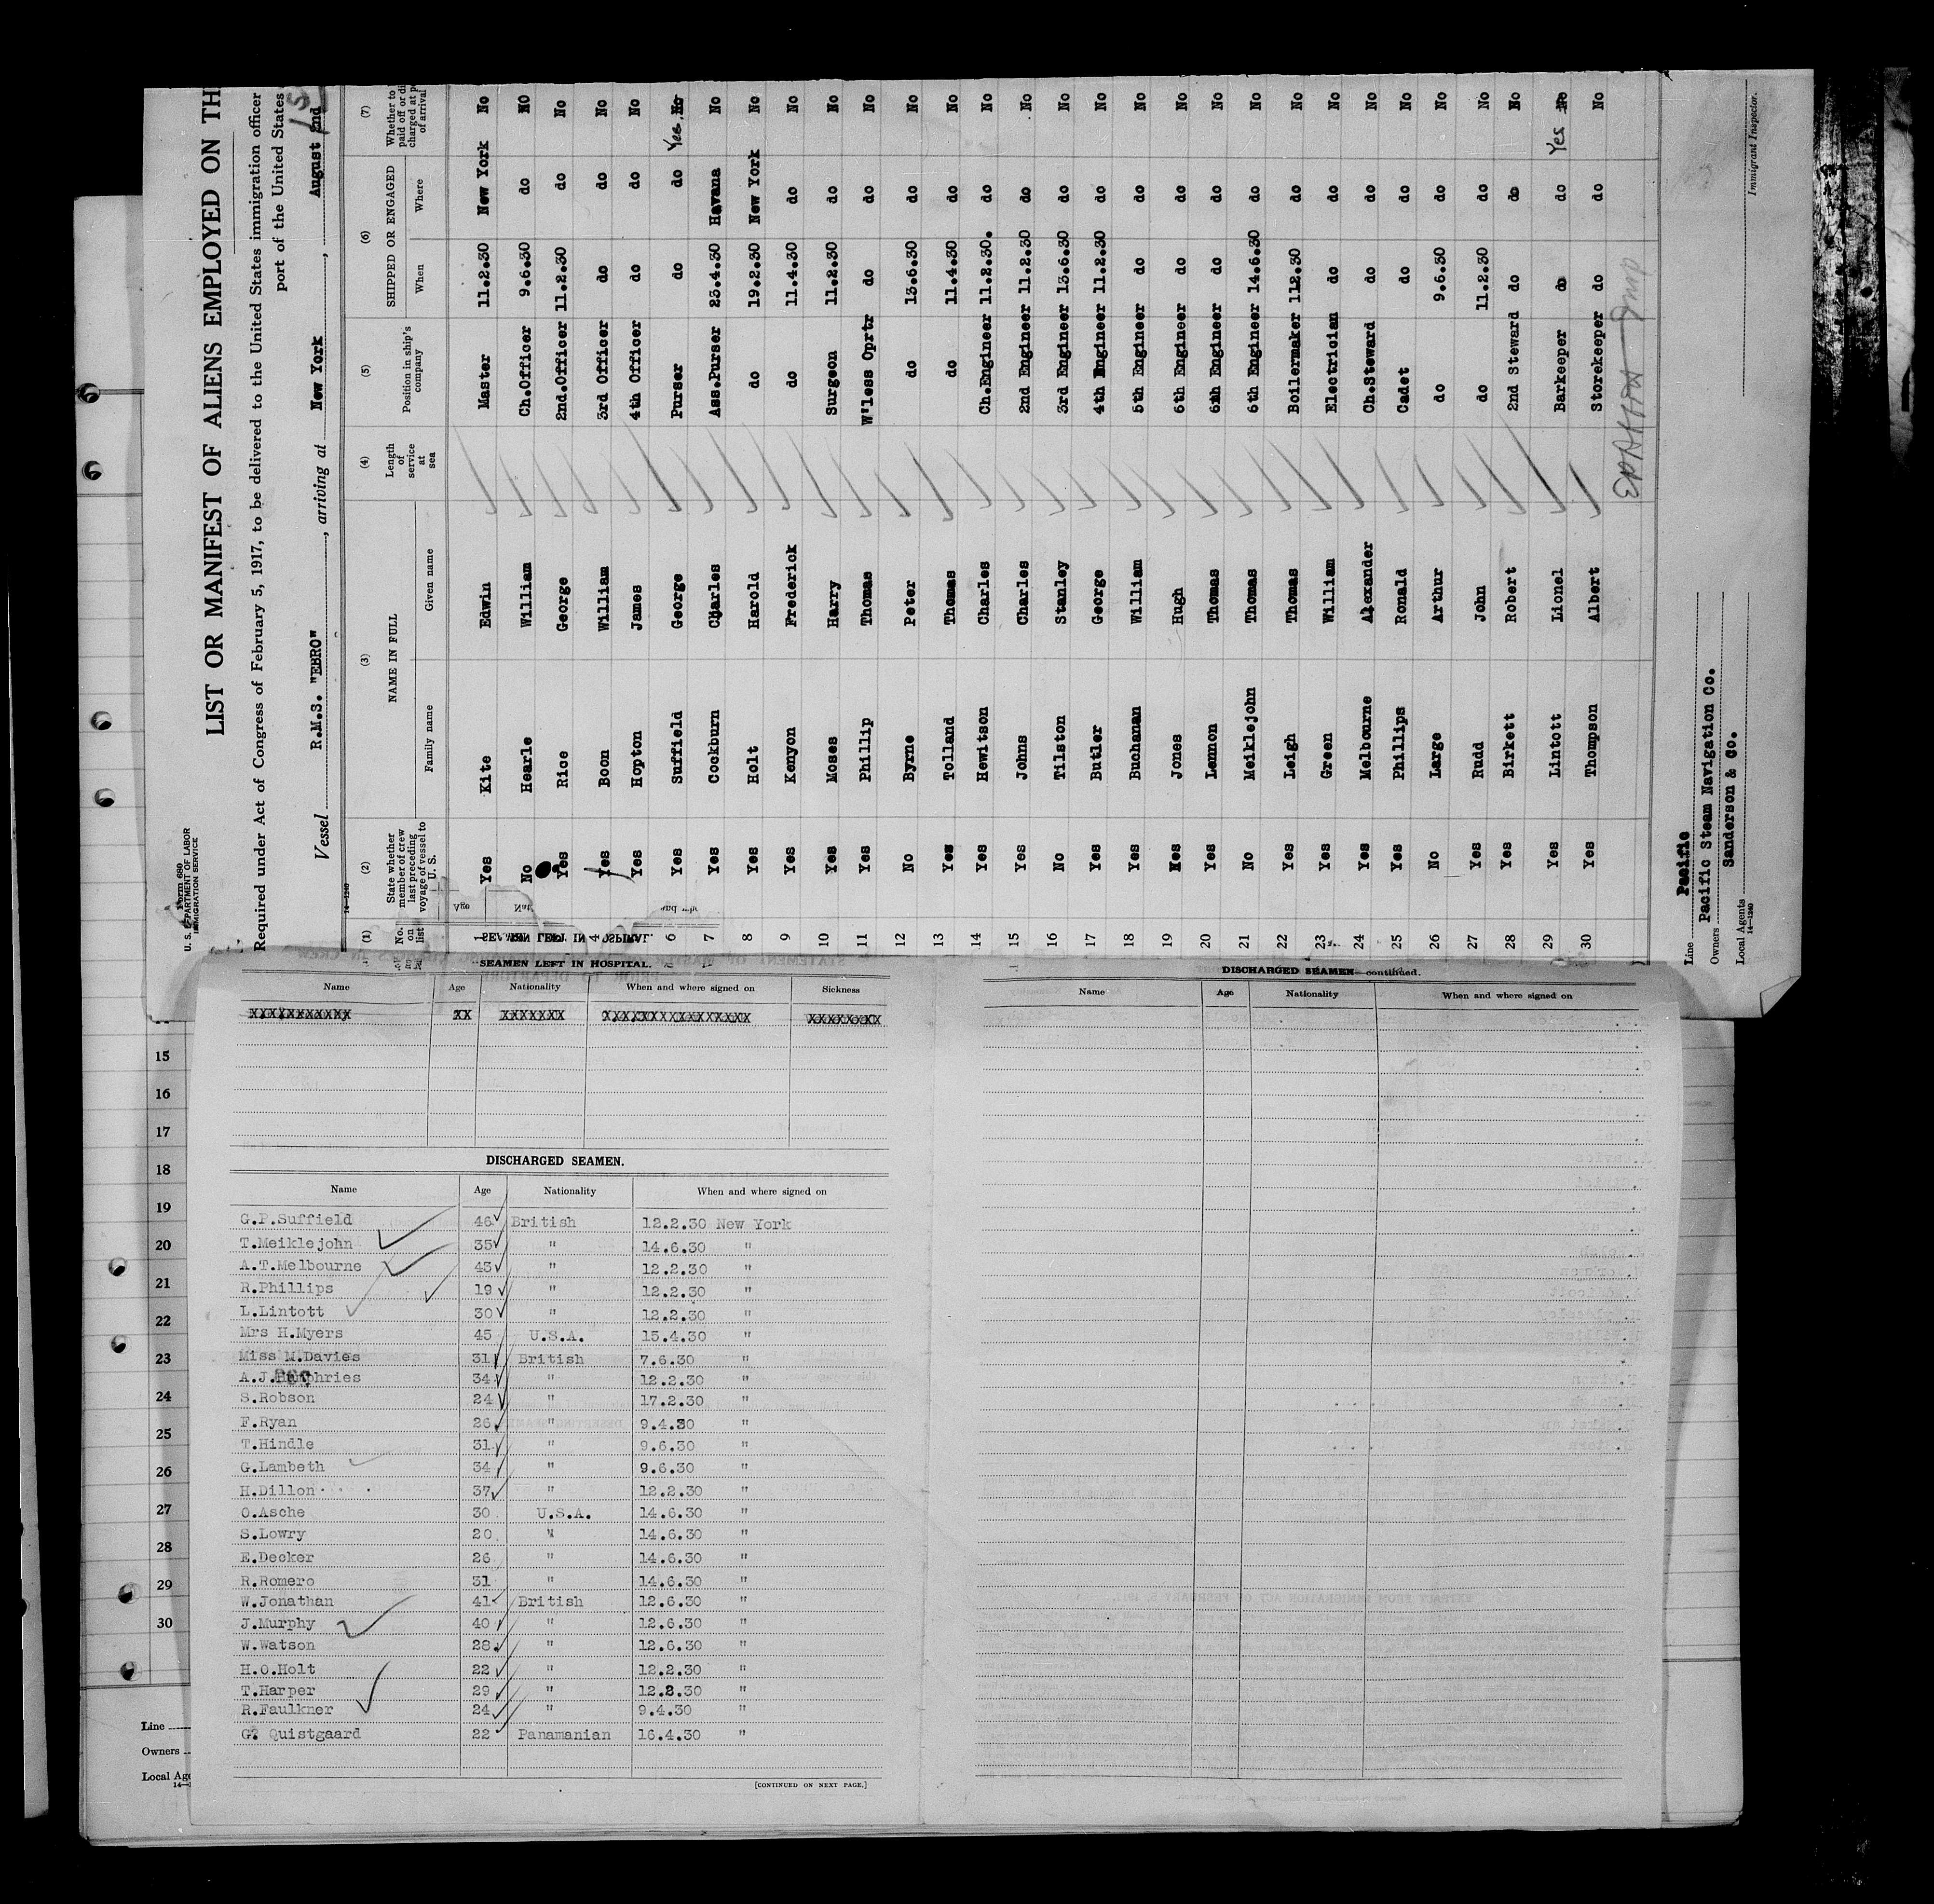 Form 680
U. S. DEPARTMENT OF LABOR
IMMIGRATION SERVICE
LIST OR MANIFEST OF ALIENS EMPLOYED ON TH
Required under Act of Congress of February 5, 1917, to be delivered to the United States immigration officer
port of the United States
Vessel R.M.S. "EBRO", arriving at New York, August 2nd
14—1240
(1) (2) (3) (4) (5) (6) (7)
No. on list State whether member of crew last preceding voyage of vessel to U. S. NAME IN FULL Family name Given name Length of service at sea Position in ship's company SHIPPED OR ENGAGED When Where Whether to paid off or di charged at p of arrival
Yes Kite Edwin Master 11.2.30 New York No
No Hearle William Ch.Officer 9.6.30 do No
Yes Rice George 2nd.Officer 11.2.30 do No
4 Yes Boon William 3rd Officer do do No
Yes Hopton James 4th Officer do do No
6 Yes Suffield George Purser do do Yes No
7 Yes Cockburn Charles Ass.Purser 23.4.30 Havana No
8 Yes Holt Harold do 19.2.30 New York No
9 Yes Kenyon Frederick do 11.4.30 do No
10 Yes Moses Harry Surgeon 11.2.30 do No
11 Yes Phillip Thomas W'less Oprtr do do No
12 No Byrne Peter do 13.6.30 do No
13 Yes Tolland Thomas do 11.4.30 do No
14 Yes Hewitson Charles Ch.Engineer 11.2.30. do No
15 Yes Johns Charles 2nd Engineer 11.2.30 do No
16 No Tilston Stanley 3rd Engineer 13.6.30 do No
17 Yes Butler George 4th Engineer 11.2.30 do No
18 Yes Buchanan William 5th Engineer do do No
19 Jones Hugh 6th Engineer do do No
20 Yes Lemon Thomas 6th Engineer do do No
21 No Meiklejohn Thomas 6th Engineer 14.6.30 do No
22 Yes Leigh Thomas Boilermaker 112.30 do No
23 Yes Green William Electrician do do No
24 Yes Melbourne Alexander Ch.Steward do do No
25 Yes Phillips Ronald Cadet do do No
26 No Large Arthur do 9.6.30 do No
27 Yes Rudd John do 11.2.30 do No
28 Yes Birkett Robert 2nd Steward do do No
29 Yes Lintott Lionel Barkeeper do do Yes No
30 Yes Thompson Albert Storekeeper do do No
Line Pacific
Owners Pacific Steam Navigation Co.
Local Agents Sanderson & Co.
14—1240
Immigrant Inspector.
SEAMEN LEFT IN HOSPITAL.
Name Age Nationality When and where signed on Sickness
XXXXXXXXXXX XX XXXXXXX XXXXXXXXXXXXXXXX XXXXXXXX
DISCHARGED SEAMEN.
Name Age Nationality When and where signed on
G.P.Suffield 46 British 12.2.30 New York
T.Meiklejohn 35 " 14.6.30 "
A.T.Melbourne 43 " 12.2.30 "
R.Phillips 19 " 12.2.30 "
L.Lintott 30 " 12.2.30 "
Mrs H.Myers 45 U.S.A. 15.4.30 "
Miss M.Davies 31 British 7.6.30 "
A.J.Humphries 34 " 12.2.30 "
S.Robson 24 " 17.2.30 "
F.Ryan 26 " 9.4.30 "
T.Hindle 31 " 9.6.30 "
G.Lambeth 34 " 9.6.30 "
H.Dillon 37 " 12.2.30 "
O.Asche 30 U.S.A. 14.6.30 "
S.Lowry 20 " 14.6.30 "
E.Decker 26 " 14.6.30 "
R.Romero 31 " 14.6.30 "
W.Jonathan 41 British 12.6.30 "
J.Murphy 40 " 12.6.30 "
W.Watson 28 " 12.6.30 "
H.O.Holt 22 " 12.2.30 "
T.Harper 29 " 12.2.30 "
R.Faulkner 24 " 9.4.30 "
G. Quistgaard 22 Panamanian 16.4.30 "
[CONTINUED ON NEXT PAGE.]
DISCHARGED SEAMEN—continued.
Name Age Nationality When and where signed on
15
16
17
18
19
20
21
22
23
24
25
26
27
28
29
30
Line
Owners
Local Age